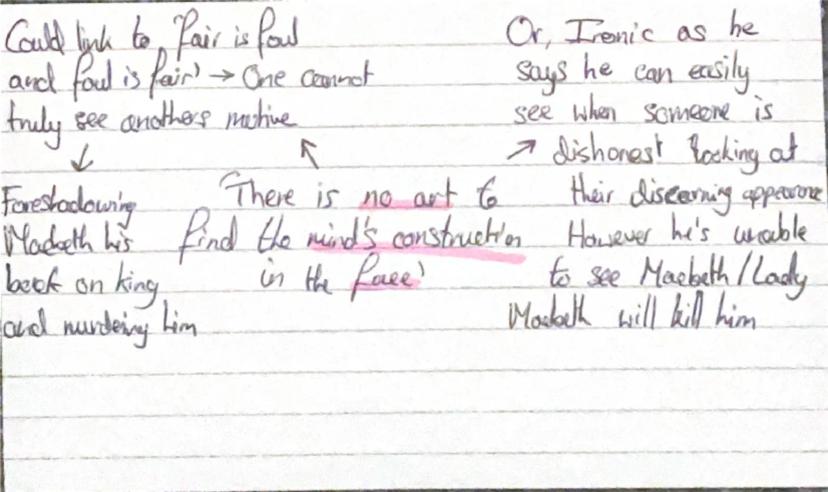 Could link to 'fair is foul
and foul is fair' → One cannot
truly see anothers motive
↓
Foreshadowing
Macbeth his
back on king
and murdering him
'There is no art to
find the mind's construction
in the face'
Or, Ironic as he
says he can easily
see when someone is
dishonest looking at
their discerning appearance
However he's unable
to see Macbeth/Lady
Macbeth will kill him